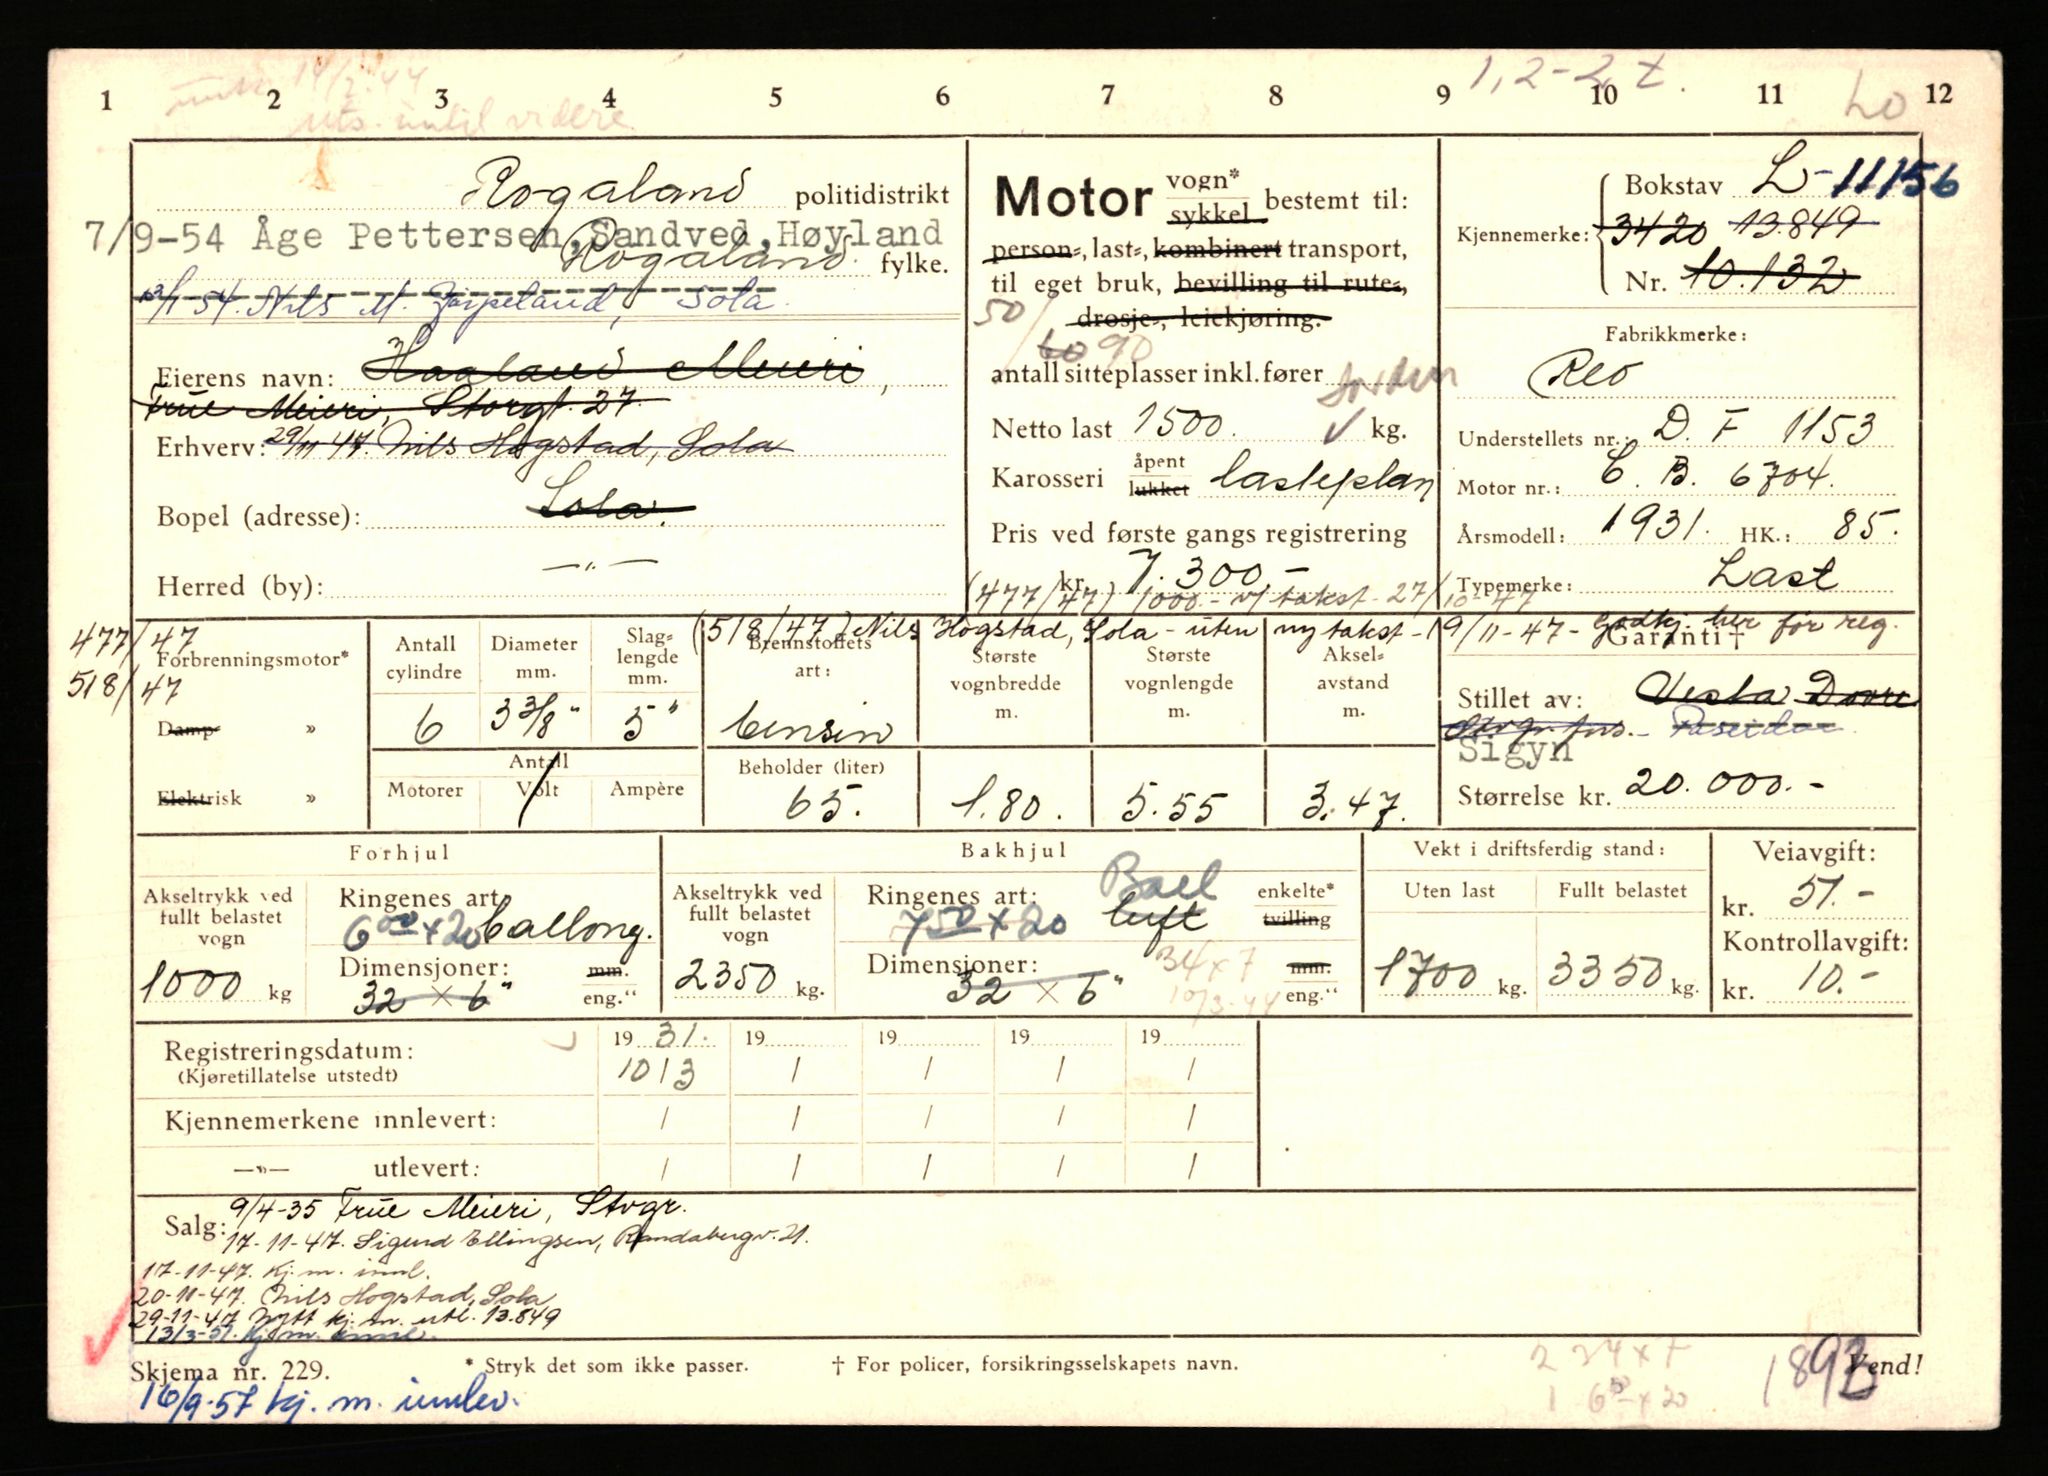 1,2-2 t.
1 2 3 4 5 6 7 8 9 10 11 12
14/2.44
uts. inntil videre
Rogaland politidistrikt
7/9-54 Åge Pettersen, Sandved, Høyland
Rogaland fylke.
Sola
Eierens navn: Haaland Meieri,
True Meieri, Storgt. 27.
Erhverv: 29/11 47. Nils Hogstad, Sola
Bopel (adresse): Sola.
Herred (by): —"—
Motor vogn* sykkel bestemt til:
person-, last-, kombinert transport,
til eget bruk, bevilling til rute-,
drosje-, leiekjøring.
50/ 60 90
antall sitteplasser inkl. fører
Netto last 1500. kg.
Karosseri åpent lukket lasteplan
Pris ved første gangs registrering
kr. 7.300.-
(477/47) 1000.- v/ takst 27/10-47
Kjennemerke: Bokstav L-11156
3420 13.849
Nr. 10.132
Fabrikkmerke:
Reo
Understellets nr.: D. F 1153
Motor nr.: C. B. 6704.
Årsmodell: 1931. HK.: 85.
Typemerke: Last
477/47
518/47
(518/47) Nils Hogstad, Sola - uten ny takst - 19/11-47 - Godkj. her for reg.
Forbrenningsmotor*
Damp »
Elektrisk »
Antall cylindre 6
Diameter mm. 3 3/8 "
Slaglengde mm. 5 "
Antall
Motorer Volt Ampère
Brennstoffets art: bensin
Beholder (liter) 65.
Største vognbredde m. 1.80.
Største vognlengde m. 5.55
Akselavstand m. 3.47.
Garanti †
Stillet av: Vesta Dovre
Sigyn
Størrelse kr. 20.000.-
Forhjul
Akseltrykk ved fullt belastet vogn
1000 kg
Ringenes art:
6⁰⁰ x 20 ballong.
Dimensjoner: mm.
32 x 6" eng."
Bakhjul
Akseltrykk ved fullt belastet vogn
2350 kg.
Ringenes art: enkelte*
7⁵⁰ x 20 luft tvilling
Dimensjoner: 34 x 7 mm.
32 x 6" 10/3-44 eng."
Vekt i driftsferdig stand:
Uten last Fullt belastet
1700 kg. 3350 kg.
Veiavgift:
kr. 51.-
Kontrollavgift:
kr. 10.-
Registreringsdatum: 19 31. 19 19 19 19
(Kjøretillatelse utstedt) 10/3 / / / /
Kjennemerkene innlevert: / / / / /
—"— utlevert: / / / / /
Salg: 9/4-35 True Meieri, Stvgr.
17-11-47. Sigurd Ellingsen, Randabergv. 21.
17-11-47. Kj. m. innl.
20-11-47. Nils Hogstad, Sola
29-11-47 Nytt kj. m. utl. 13.849
13/3-51. Kj. m. innl.
Skjema nr. 229. * Stryk det som ikke passer. † For policer, forsikringsselskapets navn. Vend!
16/9-57 kj. m. innlev.
2 34 x 7
1 6⁵⁰ x 20